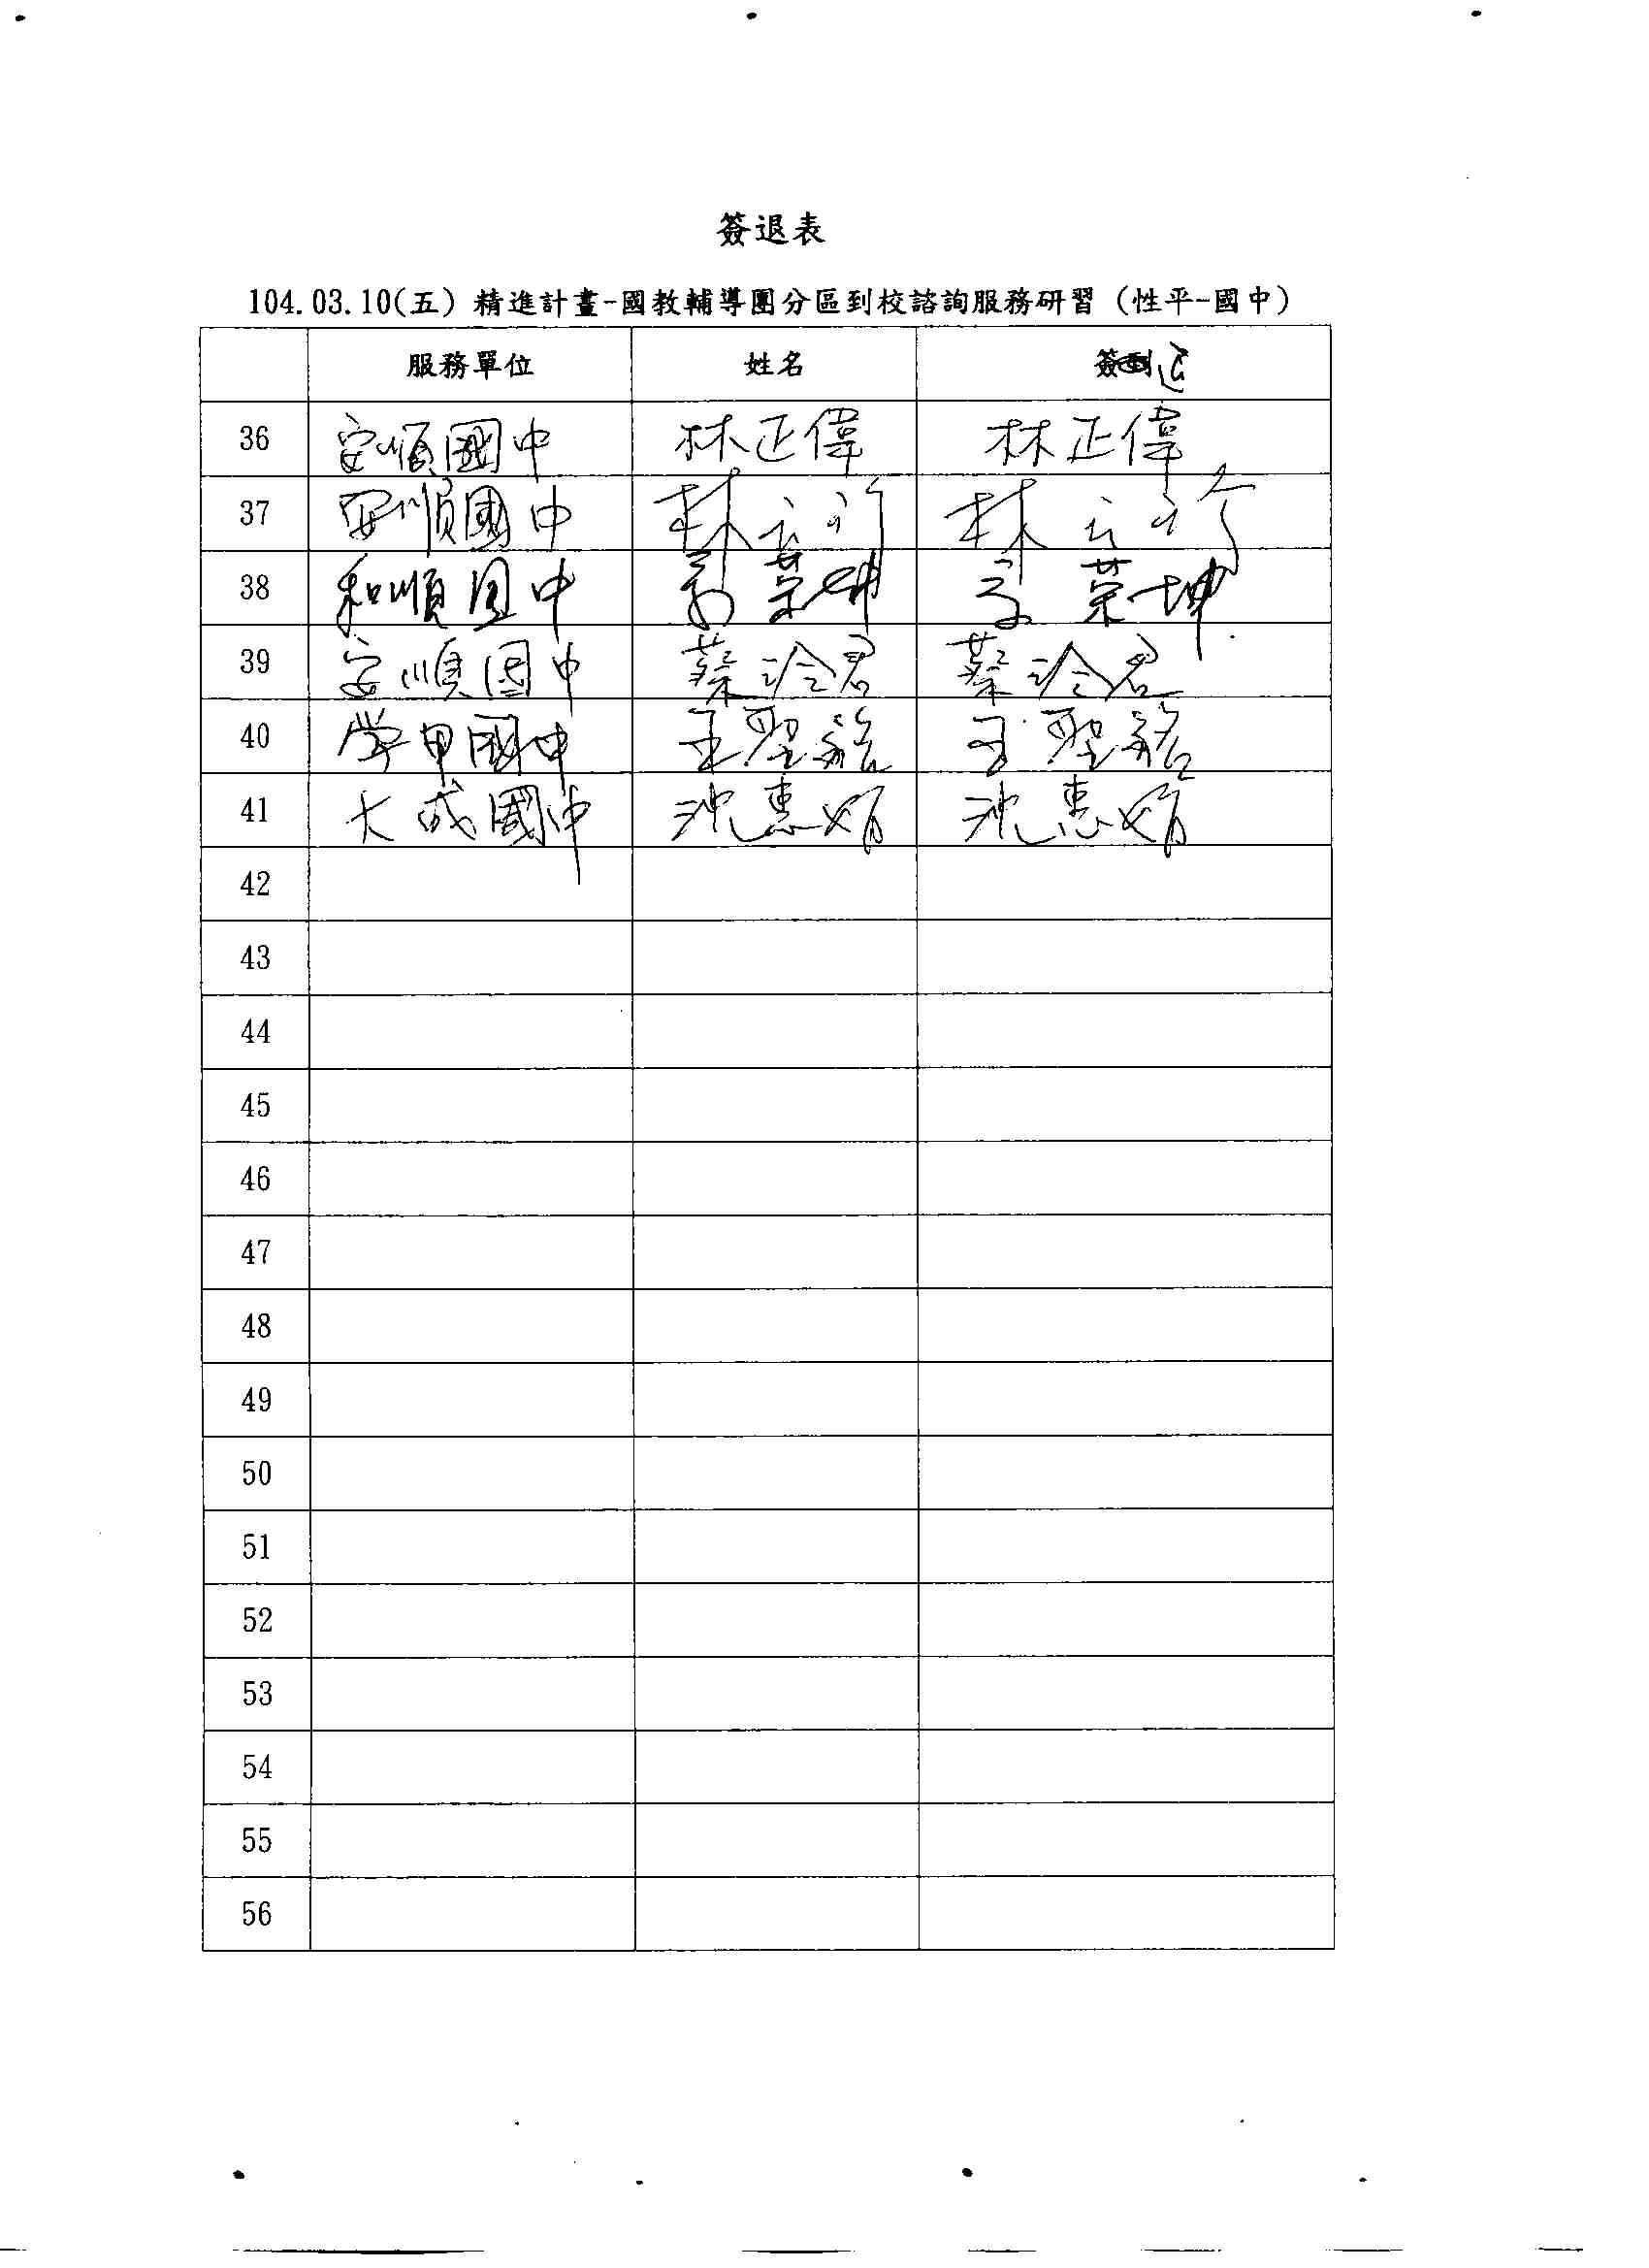 簽退表
104.03.10(五) 精進計畫-國教輔導團分區到校諮詢服務研習 (性平-國中)
服務單位 姓名 簽退
36 安順國中 林正偉 林正偉
37 安順國中 林 林
38 和順国中 榮坤 榮坤
39 安順国中 蔡冷君 蔡冷君
40 学甲國中 王聖 王聖
41 大成國中 沈惠娟 沈惠娟
42
43
44
45
46
47
48
49
50
51
52
53
54
55
56